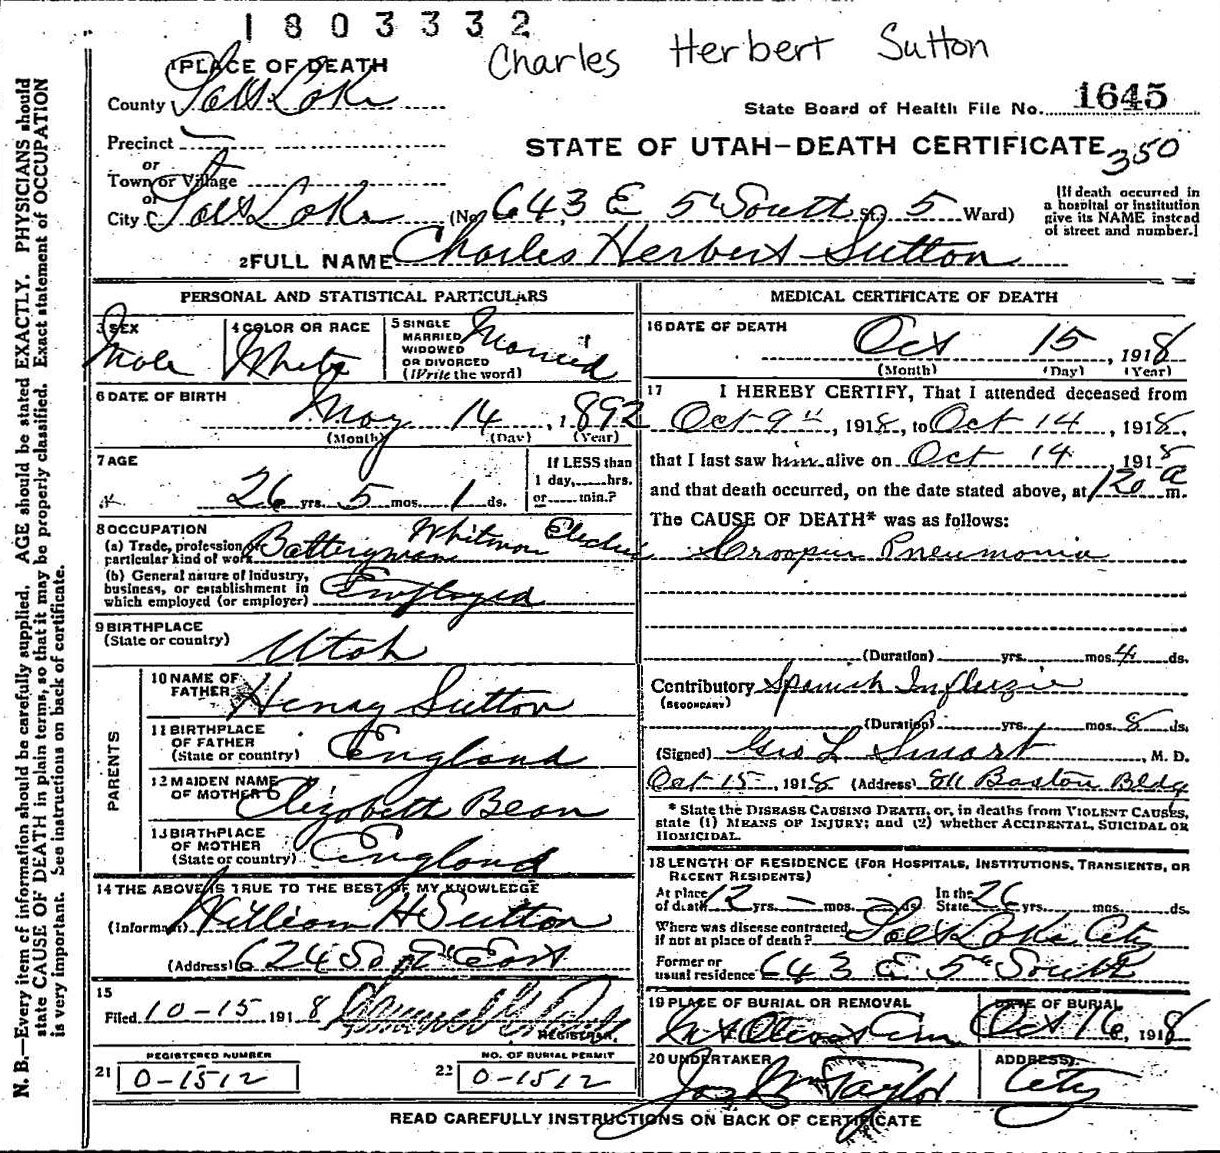 1803332
Charles Herbert Sutton
1 PLACE OF DEATH
County Salt Lake
State Board of Health File No. 1645
Precinct
or
STATE OF UTAH—DEATH CERTIFICATE
350
Town or Village
or
City Salt Lake (No. 643 E 5th South St. 5 Ward)
[If death occurred in
a hospital or institution
give its NAME instead
of street and number.]
2 FULL NAME Charles Herbert Sutton
PERSONAL AND STATISTICAL PARTICULARS
3 SEX
Male
4 COLOR OR RACE
White
5 SINGLE
MARRIED
WIDOWED
OR DIVORCED
(Write the word)
Married
6 DATE OF BIRTH
May 14, 1892
(Month) (Day) (Year)
7 AGE
26 yrs. 5 mos. 1 ds.
If LESS than
1 day, hrs.
or min.?
8 OCCUPATION
(a) Trade, profession or
particular kind of work Batteryman Whitmore Electric
(b) General nature of Industry,
business, or establishment in
which employed (or employer) Employed
9 BIRTHPLACE
(State or country) Utah
PARENTS
10 NAME OF
FATHER Henry Sutton
11 BIRTHPLACE
OF FATHER
(State or country) England
12 MAIDEN NAME
OF MOTHER Elizabeth Bean
13 BIRTHPLACE
OF MOTHER
(State or country) England
14 THE ABOVE IS TRUE TO THE BEST OF MY KNOWLEDGE
(Informant) William H Sutton
(Address) 624 So 7th East
15
Filed 10-15 1918
REGISTRAR.
REGISTERED NUMBER
21 0-1512
NO. OF BURIAL PERMIT
22 0-1512
MEDICAL CERTIFICATE OF DEATH
16 DATE OF DEATH
Oct 15, 1918
(Month) (Day) (Year)
17 I HEREBY CERTIFY, That I attended deceased from
Oct 9th, 1918, to Oct 14, 1918,
that I last saw him alive on Oct 14 1918
and that death occurred, on the date stated above, at 120 a m.
The CAUSE OF DEATH* was as follows:
Croopus Pneumonia
(Duration) yrs. mos. 4 ds.
Contributory Spanish Influezie
(SECONDARY)
(Duration) yrs. mos. 8 ds.
(Signed) Geo L Smart, M. D.
Oct 15, 1918 (Address) 811 Boston Bldg
* State the DISEASE CAUSING DEATH, or, in deaths from VIOLENT CAUSES,
state (1) MEANS OF INJURY; and (2) whether ACCIDENTAL, SUICIDAL OR
HOMICIDAL.
18 LENGTH OF RESIDENCE (FOR HOSPITALS, INSTITUTIONS, TRANSIENTS, OR
RECENT RESIDENTS)
At place
of death 12 yrs. - mos. - ds.
In the
State 26 yrs. mos. ds.
Where was disease contracted
if not at place of death? Salt Lake City
Former or
usual residence 643 E 5th South
19 PLACE OF BURIAL OR REMOVAL
Mt Olivet Cem
DATE OF BURIAL
Oct 16, 1918
20 UNDERTAKER
Jos Wm Taylor
ADDRESS
City
READ CAREFULLY INSTRUCTIONS ON BACK OF CERTIFICATE
N. B.—Every item of information should be carefully supplied. AGE should be stated EXACTLY. PHYSICIANS should
state CAUSE OF DEATH in plain terms, so that it may be properly classified. Exact statement of OCCUPATION
is very important. See instructions on back of certificate.